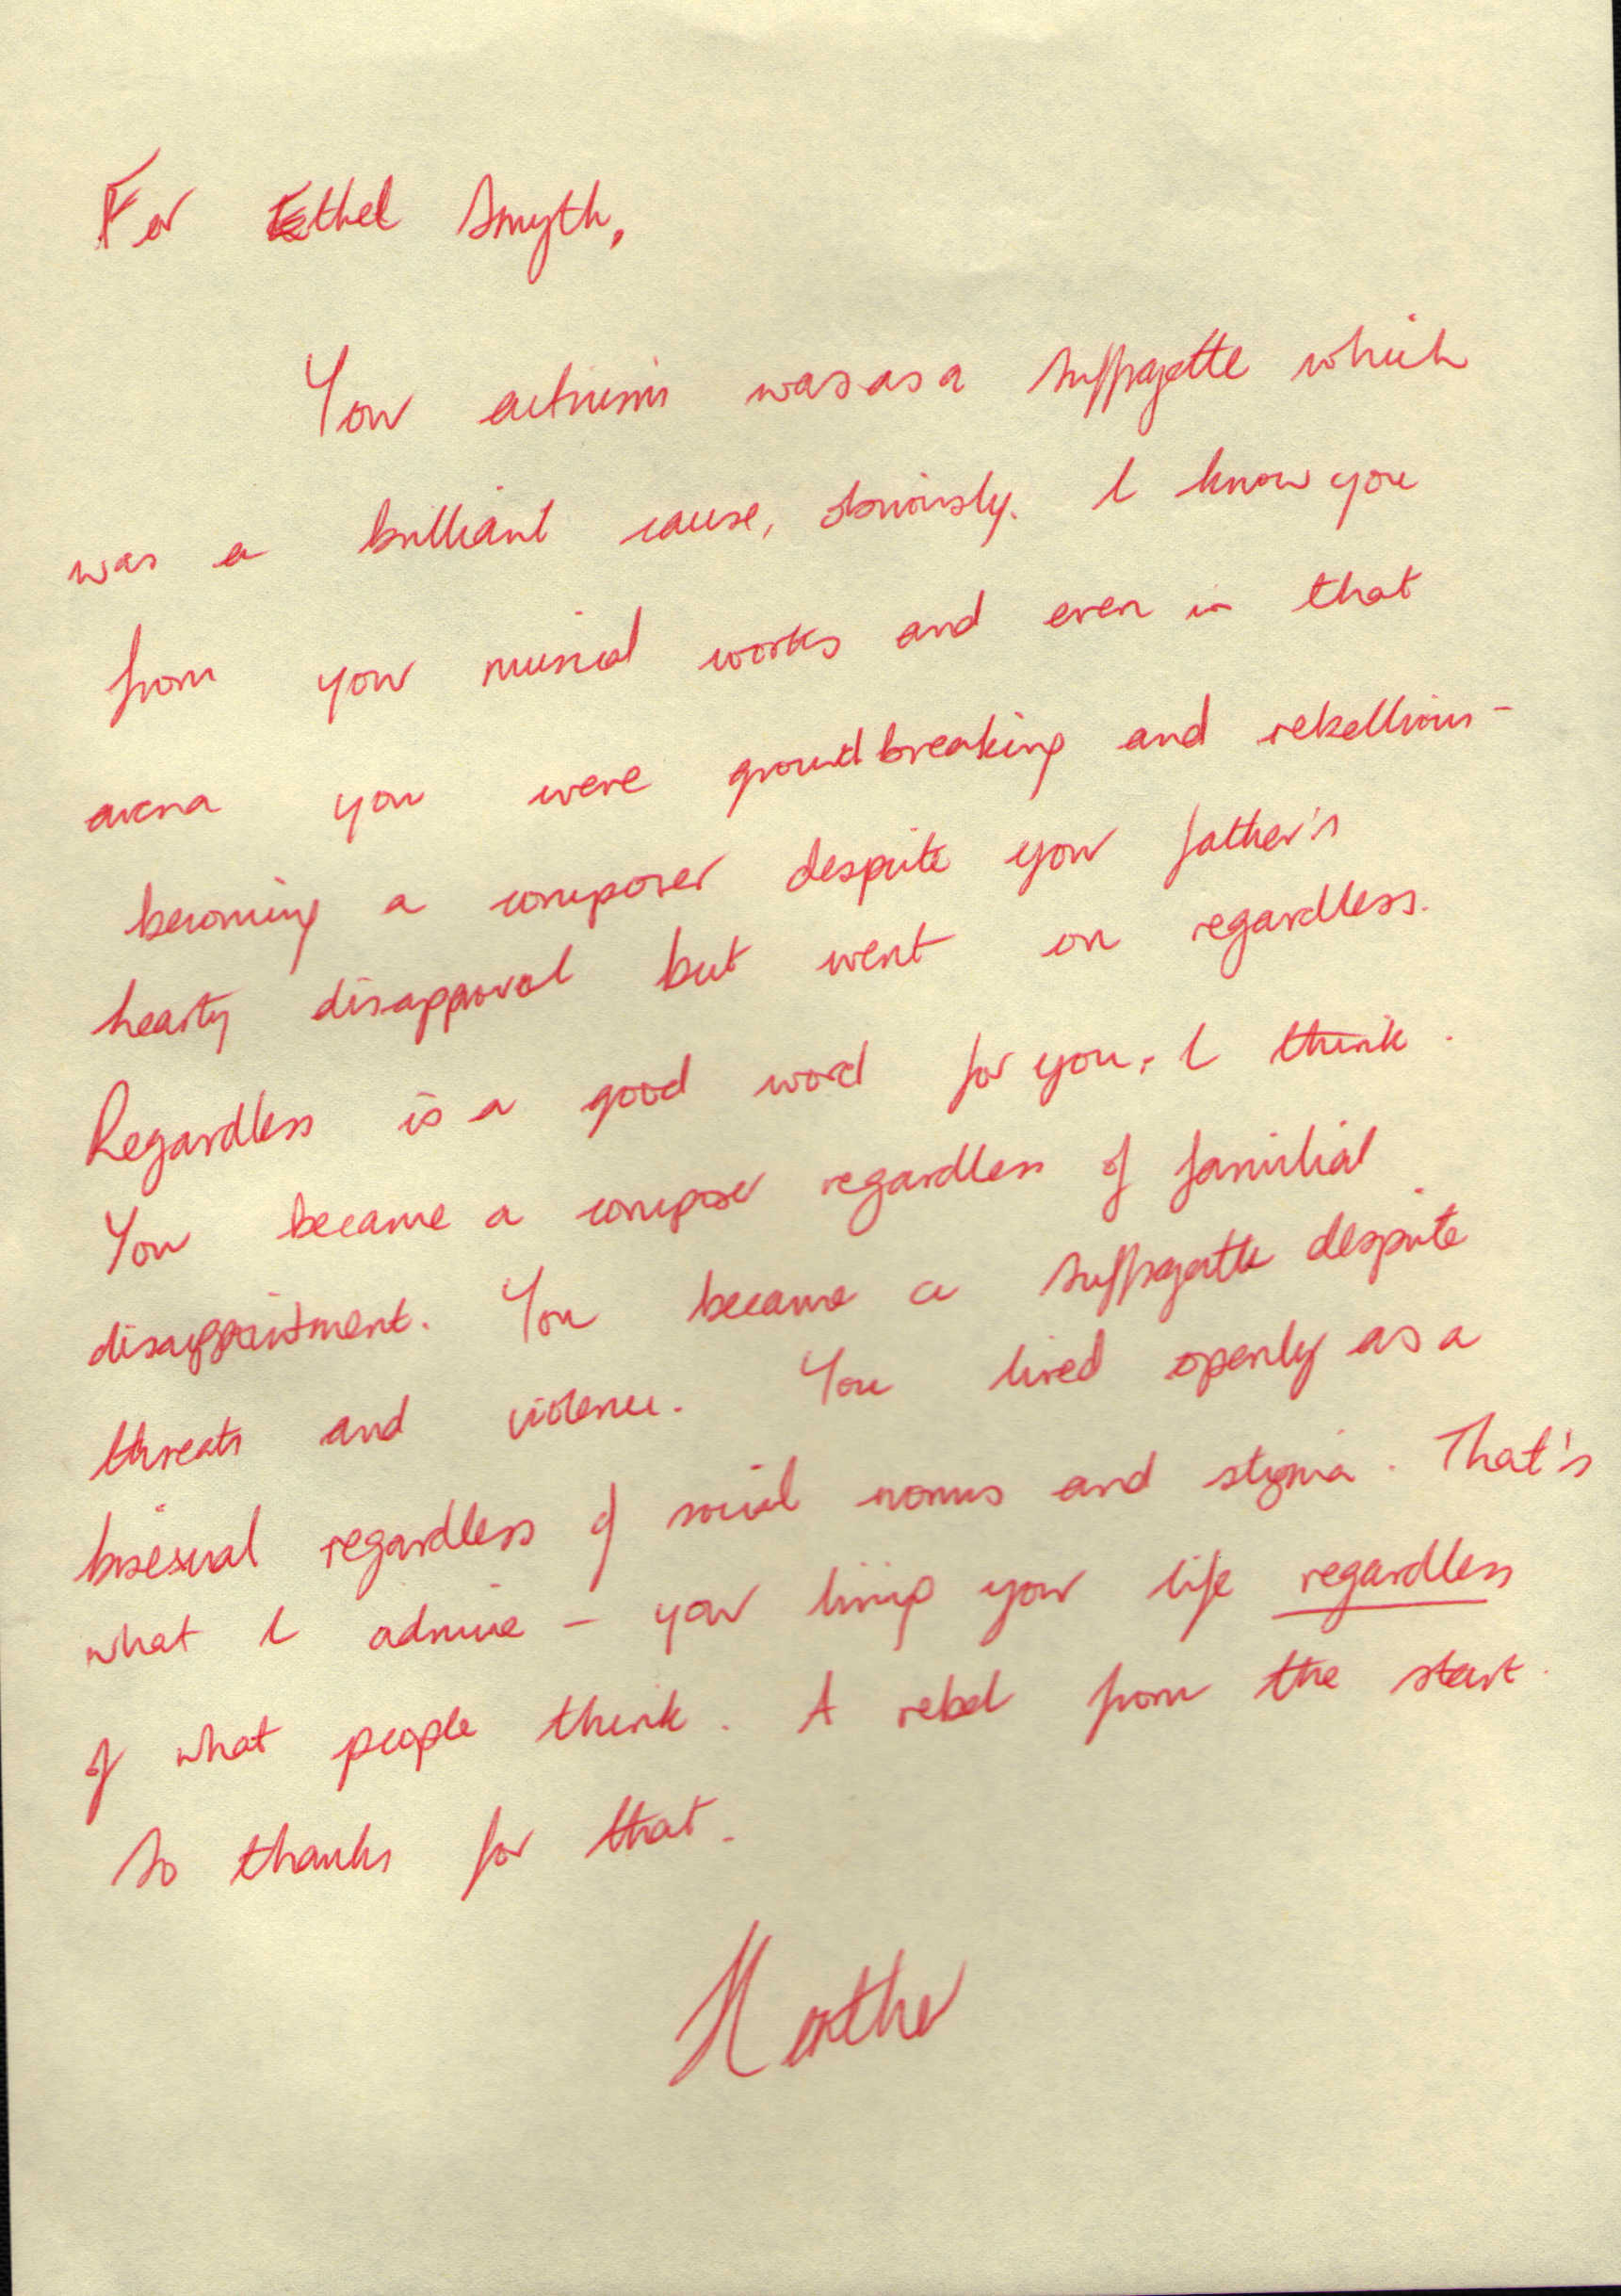 For Ethel Smyth,
Your activism was as a suffragette which
was a brilliant cause, obviously. I know you
from your musical works and even in that
arena you were groundbreaking and rebellious -
becoming a composer despite your father's
hearty disapproval but went on regardless.
Regardless is a good word for you, I think.
You became a composer regardless of familial
disappointment. You became a suffragette despite
threats and violence. You lived openly as a
bisexual regardless of social norms and stigma. That's
what I admire - your living your life regardless
of what people think. A rebel from the start.
So thanks for that.